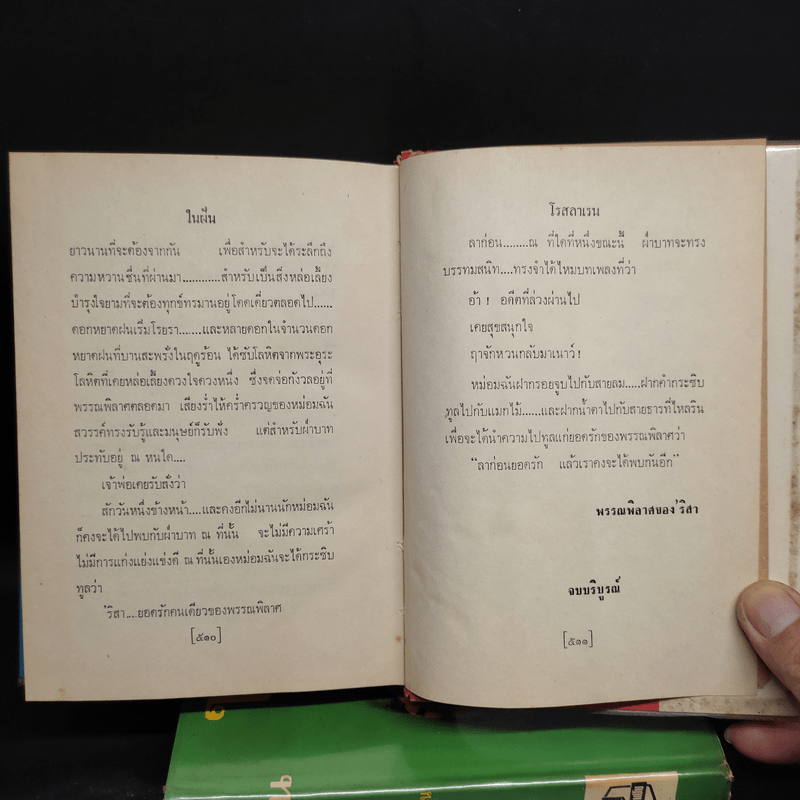 ในฝัน
ยาวนานที่จะต้องจากกัน เพื่อสำหรับจะได้ระลึกถึง
ความหวานชื่นที่ผ่านมา...........สำหรับเป็นสิ่งหล่อเลี้ยง
บำรุงใจยามที่จะต้องทุกข์ทรมานอยู่โดดเดี่ยวตลอดไป......
ดอกหยาดฝนเริ่มโรยรา.......และหลายดอกในจำนวนดอก
หยาดฝนที่บานสะพรั่งในฤดูร้อน ได้ซับโลหิตจากพระอุระ
โลหิตที่เคยหล่อเลี้ยงดวงใจดวงหนึ่ง ซึ่งจดจ่อกังวลอยู่ที่
พรรณพิลาศตลอดมา เสียงร่ำไห้คร่ำครวญของหม่อมฉัน
สวรรค์ทรงรับรู้และมนุษย์ก็รับฟัง แต่สำหรับฝ่าบาท
ประทับอยู่ ณ หนใด....
เจ้าพ่อเคยรับสั่งว่า
สักวันหนึ่งข้างหน้า....และคงอีกไม่นานนักหม่อมฉัน
ก็คงจะได้ไปพบกับฝ่าบาท ณ ที่นั้น จะไม่มีความเศร้า
ไม่มีการแก่งแย่งแข่งดี ณ ที่นั้นเองหม่อมฉันจะได้กระซิบ
ทูลว่า
'ริสา....ยอดรักคนเดียวของพรรณพิลาศ
[๕๑๐]
โรสลาเรน
ลาก่อน........ณ ที่ใดที่หนึ่งขณะนี้ ฝ่าบาทจะทรง
บรรทมสนิท....ทรงจำได้ไหมบทเพลงที่ว่า
อ้า ! อดีตที่ล่วงผ่านไป
เคยสุขสนุกใจ
ฤาจักหวนกลับมาเนาว์!
หม่อมฉันฝากรอยจูบไปกับสายลม.....ฝากคำกระซิบ
ทูลไปกับแมกไม้.....และฝากน้ำตาไปกับสายธารที่ไหลริน
เพื่อจะได้นำความไปทูลแก่ยอดรักของพรรณพิลาศว่า
"ลาก่อนยอดรัก แล้วเราคงจะได้พบกันอีก"
พรรณพิลาศของ'ริสา
จบบริบูรณ์
[๕๑๑]